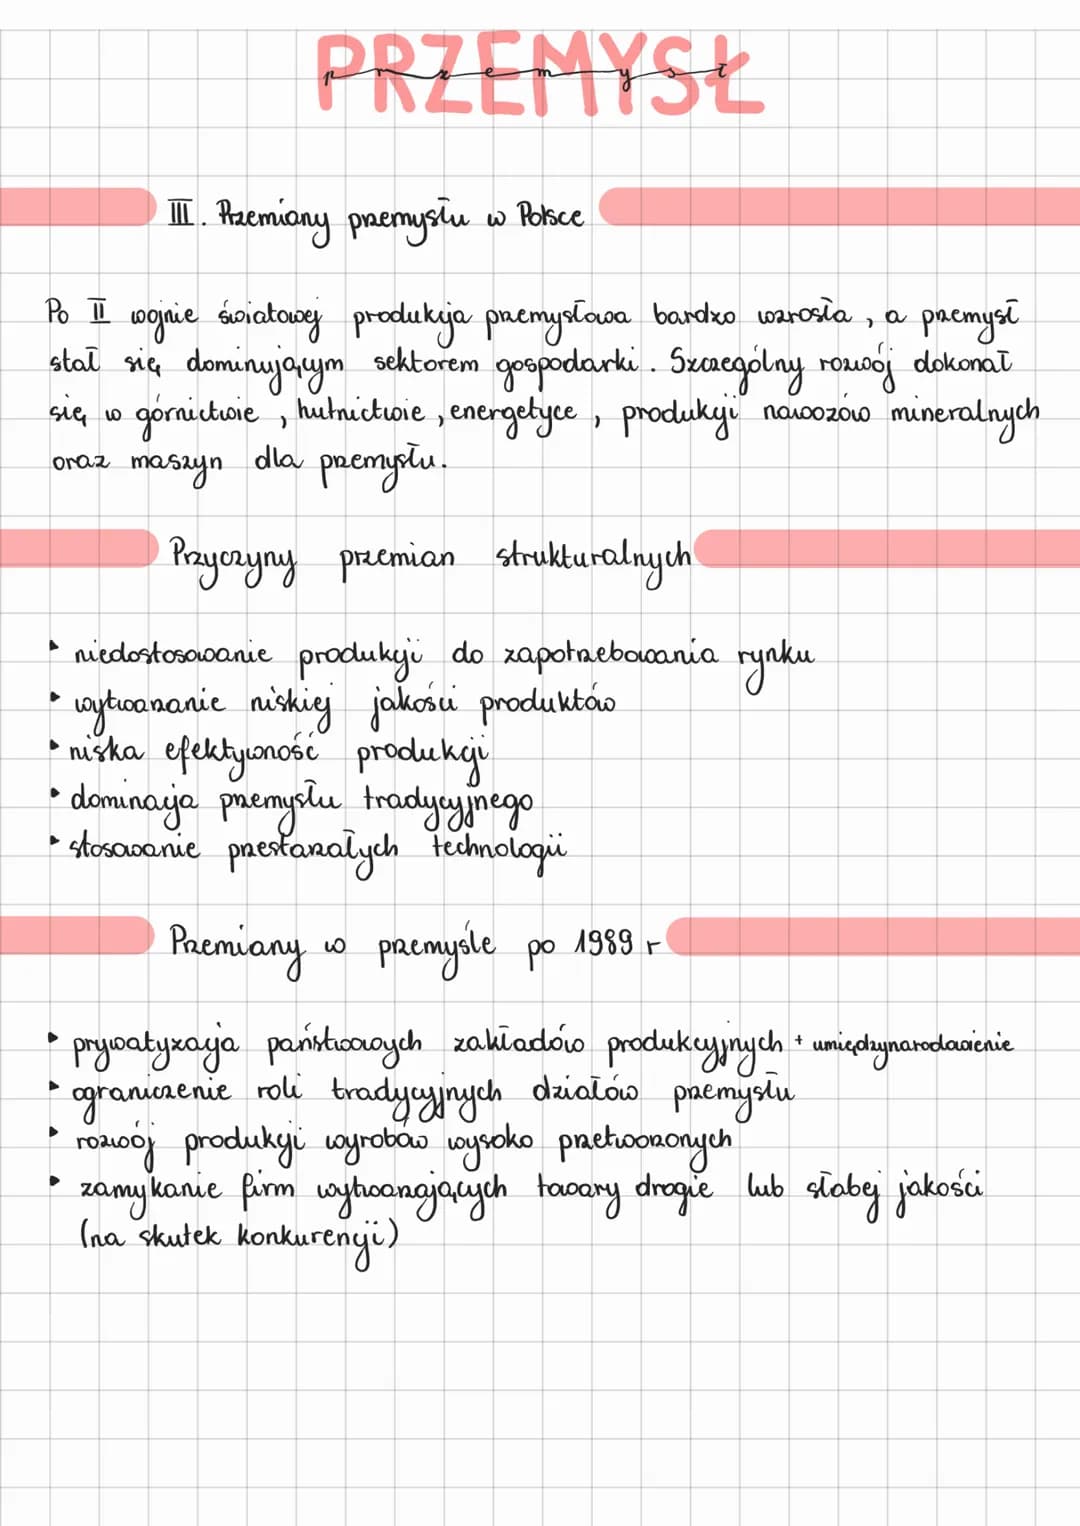 PRZEMYSŁ
przemysł
III. Przemiany przemysłu w Polsce
Po II wojnie światowej produkcja przemysłowa bardzo wzrosła, a przemysł
stał się dominującym sektorem gospodarki. Szczególny rozwój dokonał
się w górnictwie, hutnictwie, energetyce, produkcji nawozów mineralnych
oraz maszyn dla przemysłu.
Przyczyny przemian strukturalnych
‣ niedostosowanie produkcji do zapotrzebowania rynku
‣ wytwarzanie niskiej jakości produktów
‣ niska efektywność produkcji
‣ dominacja przemysłu tradycyjnego
‣ stosowanie przestarzałych technologii
Przemiany w przemyśle po 1989 r
‣ prywatyzacja państwowych zakładów produkcyjnych + umiędzynarodowienie
‣ ograniczenie roli tradycyjnych działów przemysłu
‣ rozwój produkcji wyrobów wysoko przetworzonych
‣ zamykanie firm wytwarzających towary drogie lub słabej jakości
(na skutek konkurencji)